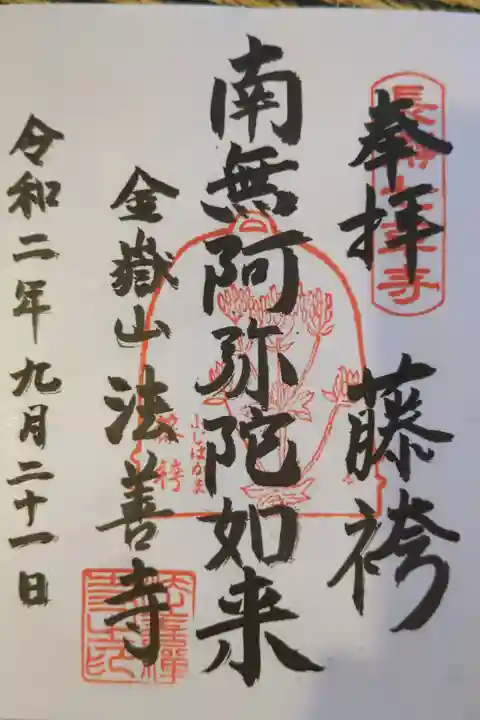 奉拝 藤袴
長瀞七草寺
南無阿弥陀如来
ふじばかま
藤袴
金嶽山 法善寺
令和二年九月二十一日